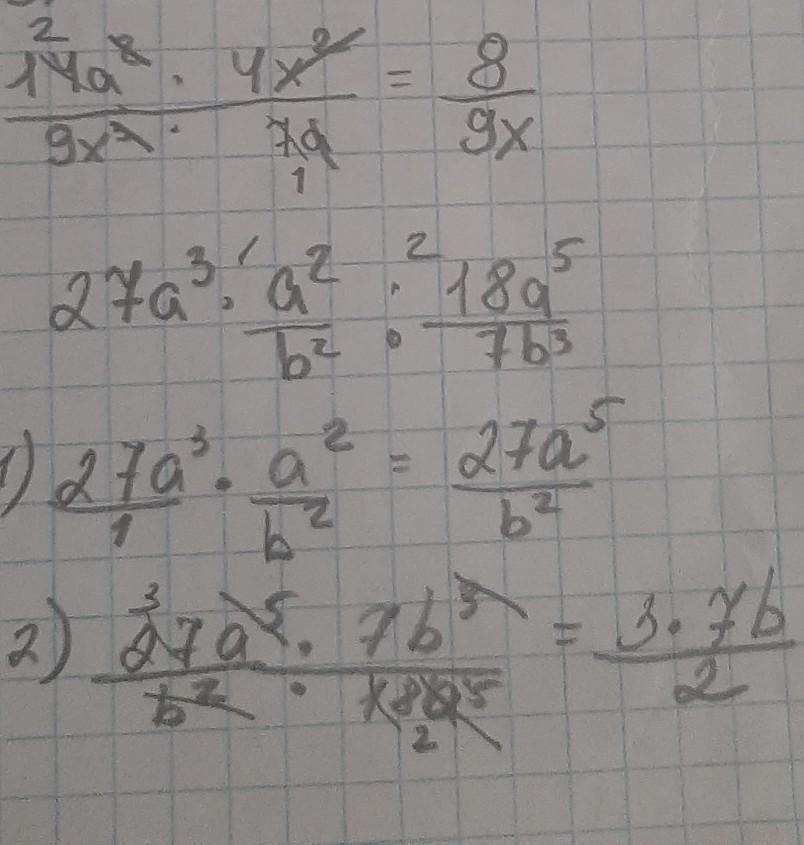 2
14a⁸ · 4x² / 9x³ · 7a = 8 / 9x
1
27a³ · a² / b² : 18a⁵ / 7b³
1) 27a³ / 1 · a² / b² = 27a⁵ / b²
2) 27a⁵ · 7b³ / b² · 18a⁵ = 3·7b / 2
3
2